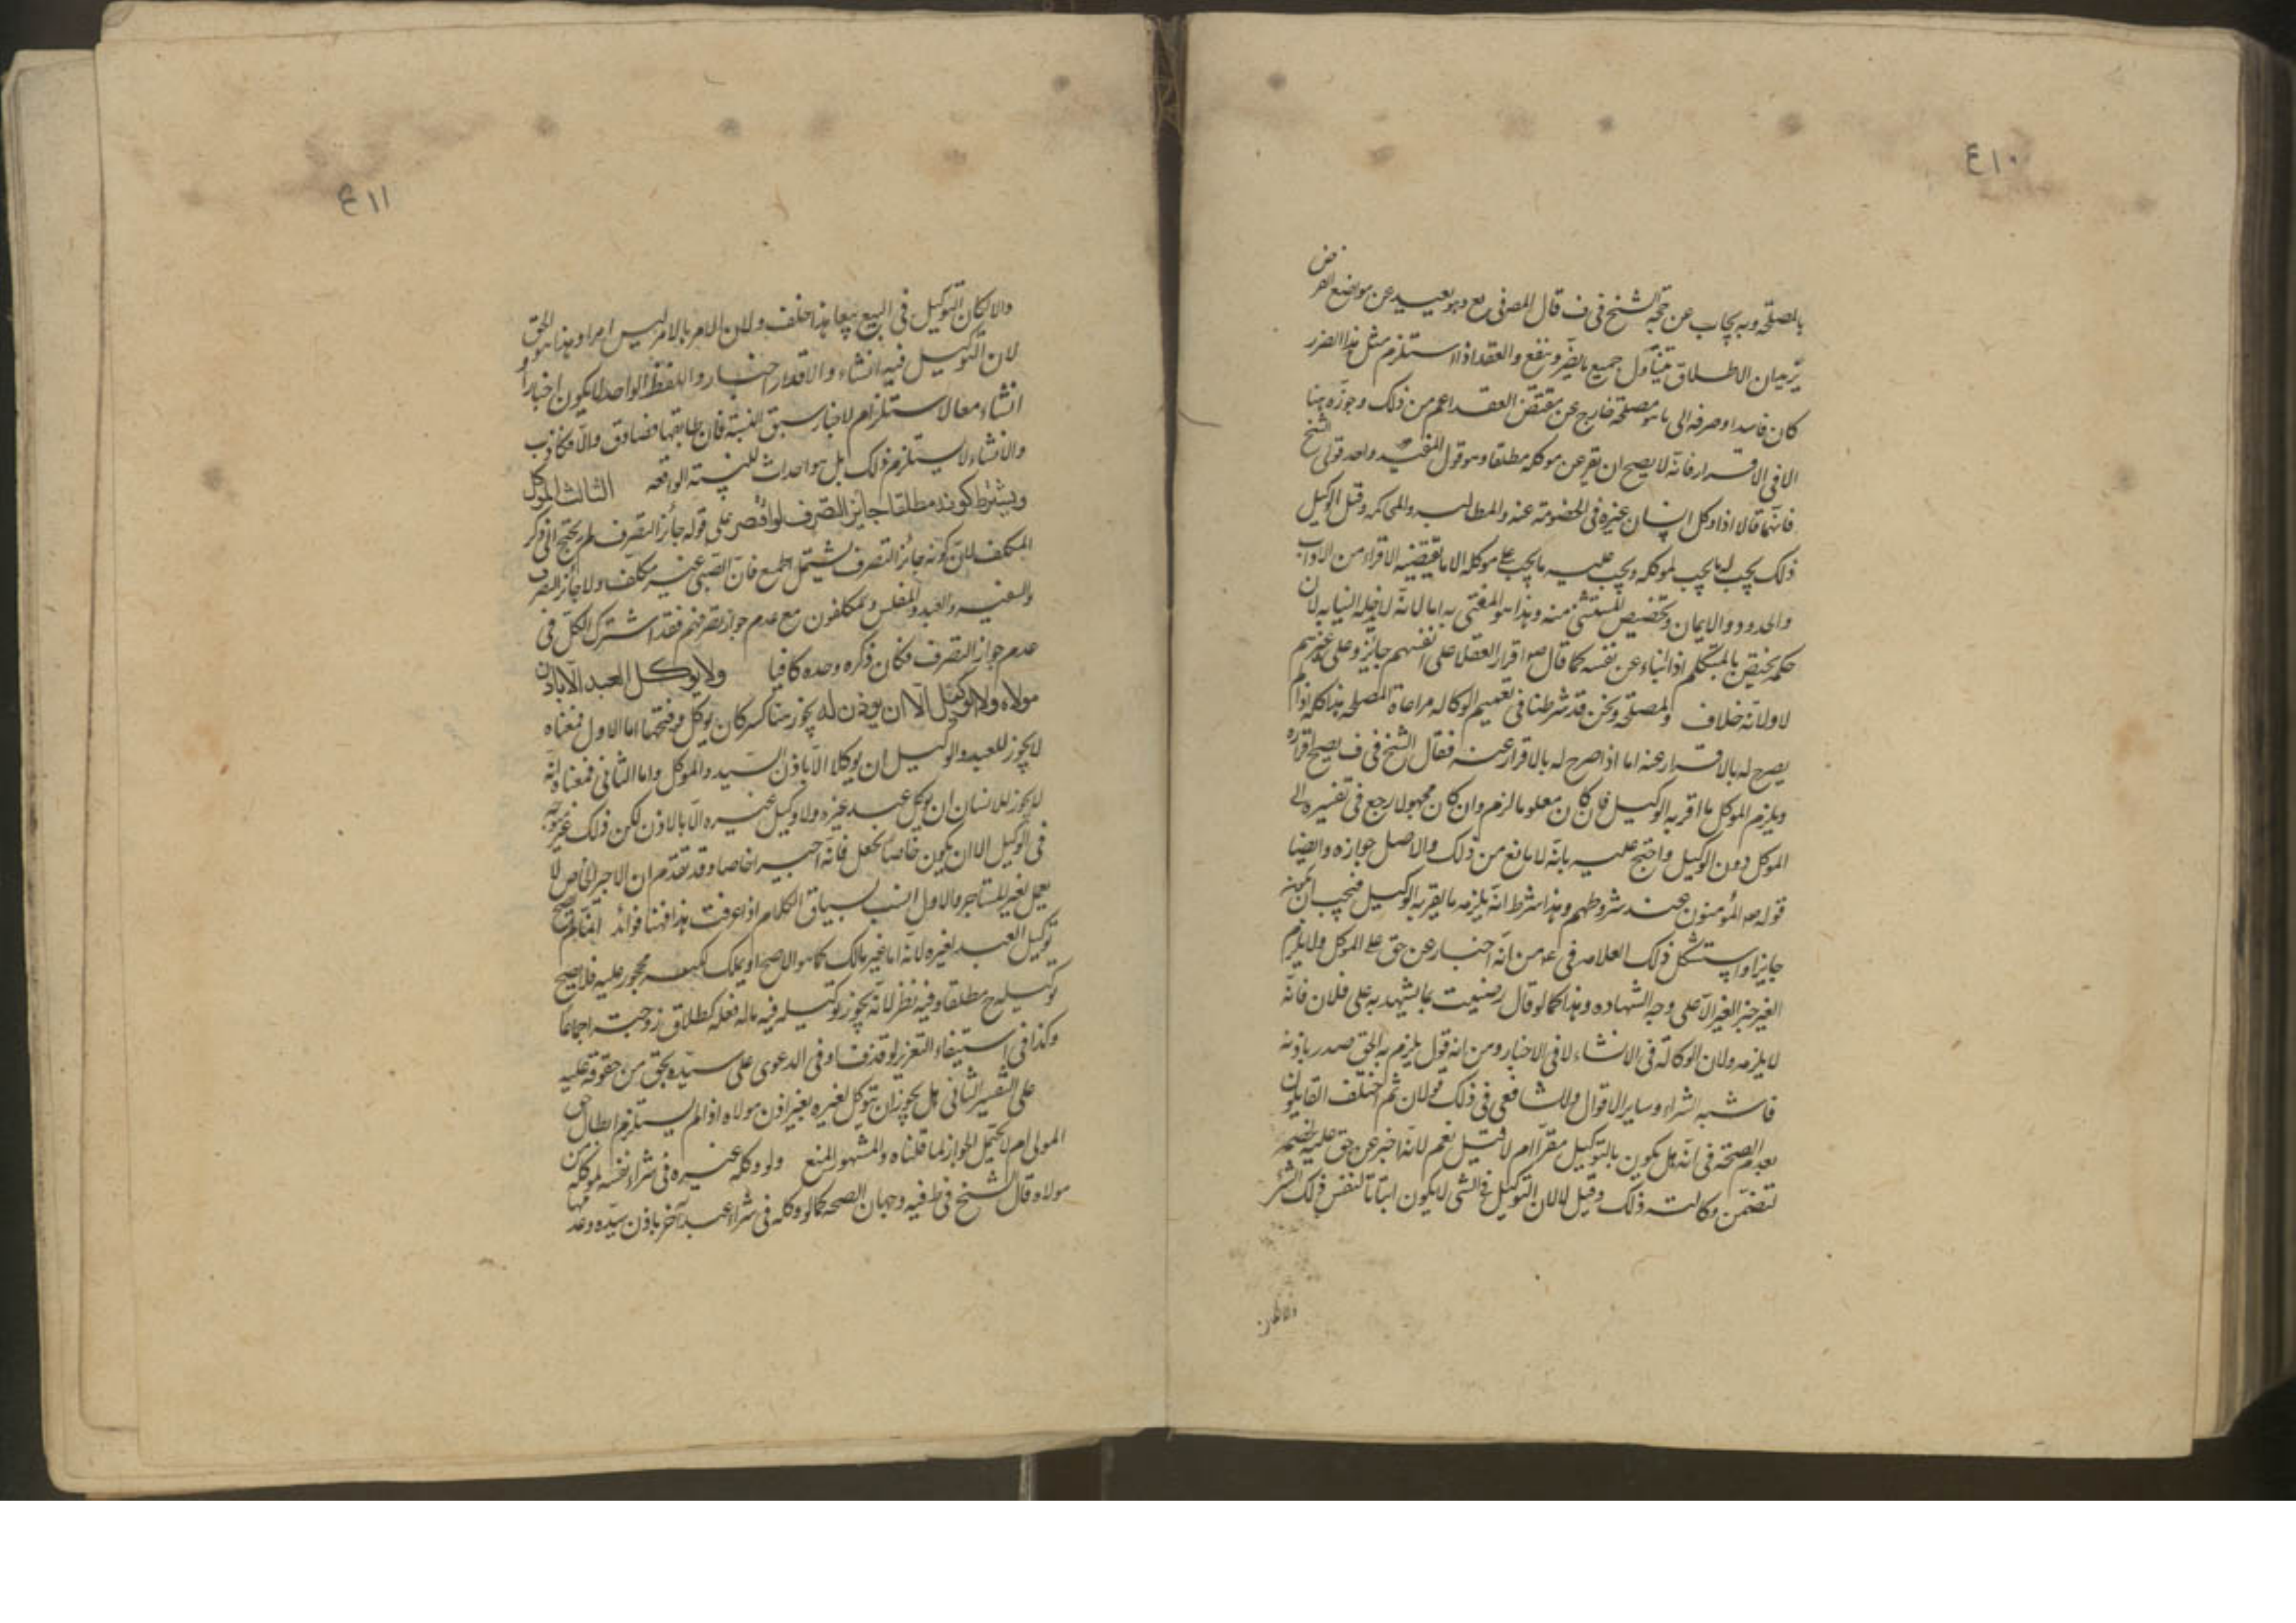 ٤١٠
بالمصلحة وبه يجاب عن حجة الشيخ في ف قال المصر في يع وهو بعيد عن موضع الفرض
يريد ان الاطلاق يتناول جميع ما يضر وينفع والعقد اذا استلزم مثل هذا الضرر
كان فاسدا وصرفه الى ما هو مصلحة خارج عن مقتضى العقد اعم من ذلك وجوزه هنا
الا في الاقرار فانه لا يصح ان يقر عن موكله مطلقا وهو قول المفيد واحد قولي الشيخ
فانهما قالا اذا وكل انسان غيره في الخصومة عنه والمطالبه والمحاكمه وقبل الوكيل
ذلك يجب له ما يجب لموكله ويجب عليه ما يجب على موكله الا ما يقتضيه الاقرار من الاداب
والحدود والايمان وتخصيص المستثنى منه وهذا هو المفتى به اما لانه لا يدخله النيابه لان
حكمه يختص بالمتكلم اذا انباء عن نفسه كما قال ص اقرار العقلا على انفسهم جايز وعلى غيرهم
لا ولانه خلاف المصلحة ونحن قد شرطنا في تعميم الوكاله مراعاة المصلحه هذا كله اذا لم
يصرح له بالاقرار عنه اما اذا صرح له بالاقرار عنه فقال الشيخ في ف يصح اقراره
ويلزم الموكل ما اقر به الوكيل فان كان معلوما لزم وان كان مجهولا رجع في تفسيره الى
الموكل دون الوكيل واحتج عليه بانه لا مانع من ذلك والاصل جوازه وايضا
قوله ص المؤمنون عند شروطهم وهذا شرط انه يلزمه ما يقر به الوكيل فيجب ان يكون
جايزا واستشكل ذلك العلامه في عد من انه اخبار عن حق على الموكل ولا يلزم
الغير خبر الغير الا على وجه الشهاده وهذا كما لو قال رضيت بما يشهد به على فلان فانه
لا يلزمه ولان الوكالة في الانشاء لا في الاخبار ومن انه قول يلزم به الحق صدر باذنه
فاشبه الشراء وساير الاقوال وللشافعي في ذلك قولان ثم اختلف القايلون
بعدم الصحة في انه هل يكون بالتوكيل مقرا ام لا قيل نعم لانه اخبر عن حق عليه لخصمه
لتضمن وكالته ذلك وقيل لا لان التوكيل في الشئ لا يكون اثباتا لنفس ذلك الشئ
٤١١
والا لكان التوكيل في البيع بيعا هذا خلف ولان الامر بالامر ليس امرا وهذا هو الحق
لان التوكيل فيه انشاء والاقرار اخبار واللفظ الواحد لا يكون اخبارا و
انشاء معا لاستلزام الاخبار سبق النسبة فان طابقها فصادق والا فكاذب
والانشاء لا يستلزم ذلك بل هو احداث للنسبة الواقعه الثالث الموكل
ويشترط كونه مطلقا جايز التصرف لو اقتصر على قوله جائز التصرف لم يحتج الى ذكر
المكلف لان كونه جائز التصرف يشتمل الجميع فان الصبي غير مكلف ولا جائز التصرف
والسفيه والعبد والمفلس مكلفون مع عدم جواز تصرفهم فقد اشترك الكل في
عدم جواز التصرف فكان ذكره وحده كافيا ولا يوكل العبد الا باذن
مولاه ولا الوكيل الا ان يوذن له يجوز هنا كسر كاف يوكل وفتحها اما الاول فمعناه
لا يجوز للعبد والوكيل ان يوكلا الا باذن السيد والموكل واما الثاني فمعناه انه
لا يجوز للانسان ان يوكل عبد غيره ولا وكيل غيره الا بالاذن لكن ذلك غير متوجه
في الوكيل الا ان يكون خاصا بجعل فانه اجير خاصا وقد تقدم ان الاجير الخاص لا
يعمل لغير المستاجر والاول انسب بسياق الكلام اذا عرفت هذا فهنا فوائد انما لم يصح
توكيل العبد لغيره لانه اما غير مالك كما هو الاصح او يملك لكنه محجور عليه فلا يصح
توكيله ح مطلقا وفيه نظر لانه يجوز توكيله فيما له فعله كطلاق زوجته اجماعا
وكذا في استيفاء التعزير لو قذف او في الدعوى على سيده بحق من حقوقه عليه
على التفسير الثاني هل يجوز ان يتوكل لغيره بغير اذن مولاه اذا لم يستلزم ابطال حق
المولى ام لا يحتمل الجواز لما قلناه والمشهور المنع ولو وكله غيره في شراء نفسه لموكله من
مولاه قال الشيخ في ط فيه وجهان الصحه كما لو وكله في شراء عبد آخر باذن سيده وعدمها